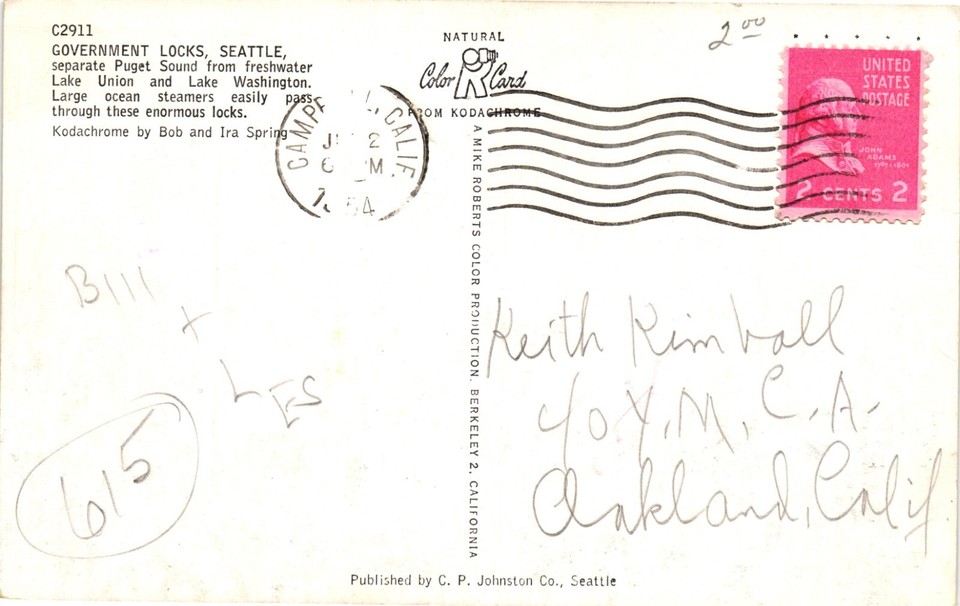 C2911
GOVERNMENT LOCKS, SEATTLE,
separate Puget Sound from freshwater
Lake Union and Lake Washington.
Large ocean steamers easily pass
through these enormous locks.
Kodachrome by Bob and Ira Spring
NATURAL
Color Card
FROM KODACHROME
2 00
CALIF.
2
M
54
UNITED
STATES
POSTAGE
JOHN
ADAMS
1797-1801
2 CENTS 2
A MIKE ROBERTS COLOR PRODUCTION, BERKELEY 2, CALIFORNIA
Bill
+
LES
615
Keith Kimball
c/o Y.M.C.A.
Oakland, Calif
Published by C. P. Johnston Co., Seattle